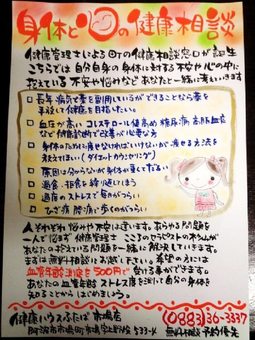 身体と心の健康相談
健康管理士によるOTの健康相談窓口が誕生
こちらでは自分自身の身体に対する不安や心の中に
抱えている不安や悩みなどあなたと一緒に考えいきます
□長年病気で薬を服用しているができることなら薬を
手放して健康を目指したい。
□血圧が高い コレステロール値高め 糖尿病 高脂血症
など健康診断で改善が必要な方
□身体のために痩せなければいけないが痩せる方法を
教えてほしい(ダイエットカウンセリング)
□原因は分からないが身体が重くてだるい
□過食・拒食を繰り返してしまう
□過度のストレスで毎日がつらい
□ひざ痛 腰痛で歩くのがつらい
人それぞれ悩みや不安は違います。あらゆる問題を
一人で悩まず健康管理士 こころのセラピストの
あなたの抱えている問題を一緒に解決していきます。
まずは無料でご相談下さい。希望の方には
血管年齢測定を500円で
受ける事ができます。
あなたの血管年齢 ストレス度を測定して自分の身体を
知ることからはじめましょう。
健康ハウスふたば 市場店
阿波市市場町市場字上野段533-4
(0883)36-3337
無料相談 予約優先